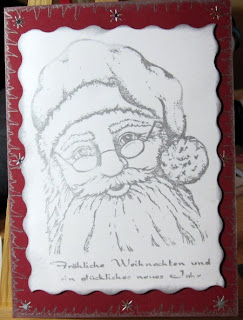 Fröhliche Weihnachten und
ein glückliches neues Jahr